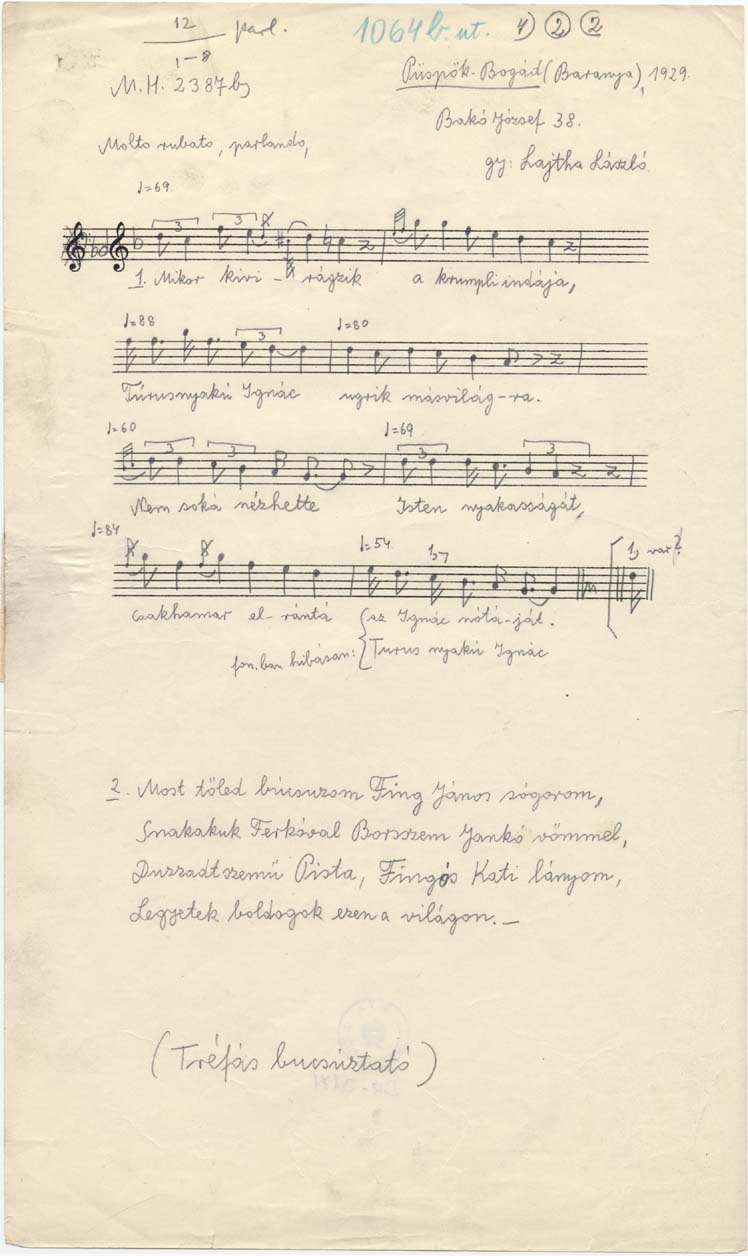 12 parl.
1-8
1064 b. ut. 4) 2 2
M.H. 2387b)
Püspök-Bogád (Baranya), 1929.
Bakó József 38.
gy: Lajtha László
Molto rubato, parlando,
♩=69.
3 3
1. Mikor kivi - rágzik a krumpli indája,
♩=88 3 ♩=80
Túrusnyakú Ignác ugrik másvilág-ra.
♩=60 3 3 ♩=69 3 3
Nem soká nézhette Isten nyakasságát,
♩=84 ♩=54 1, 1, var?
csakhamar el-rántá {az Ignác nótá-ját.
fon.ban hibásan: {Turus nyakú Ignác
2. Most tőled búcsuzom Fing János sógorom,
Ferkóval Borsszem Jankó vömmel,
Duzzadtszemű Pista, Fingós Kati lányom,
Legyetek boldogok ezen a világon. —
(Tréfás bucsúztató)